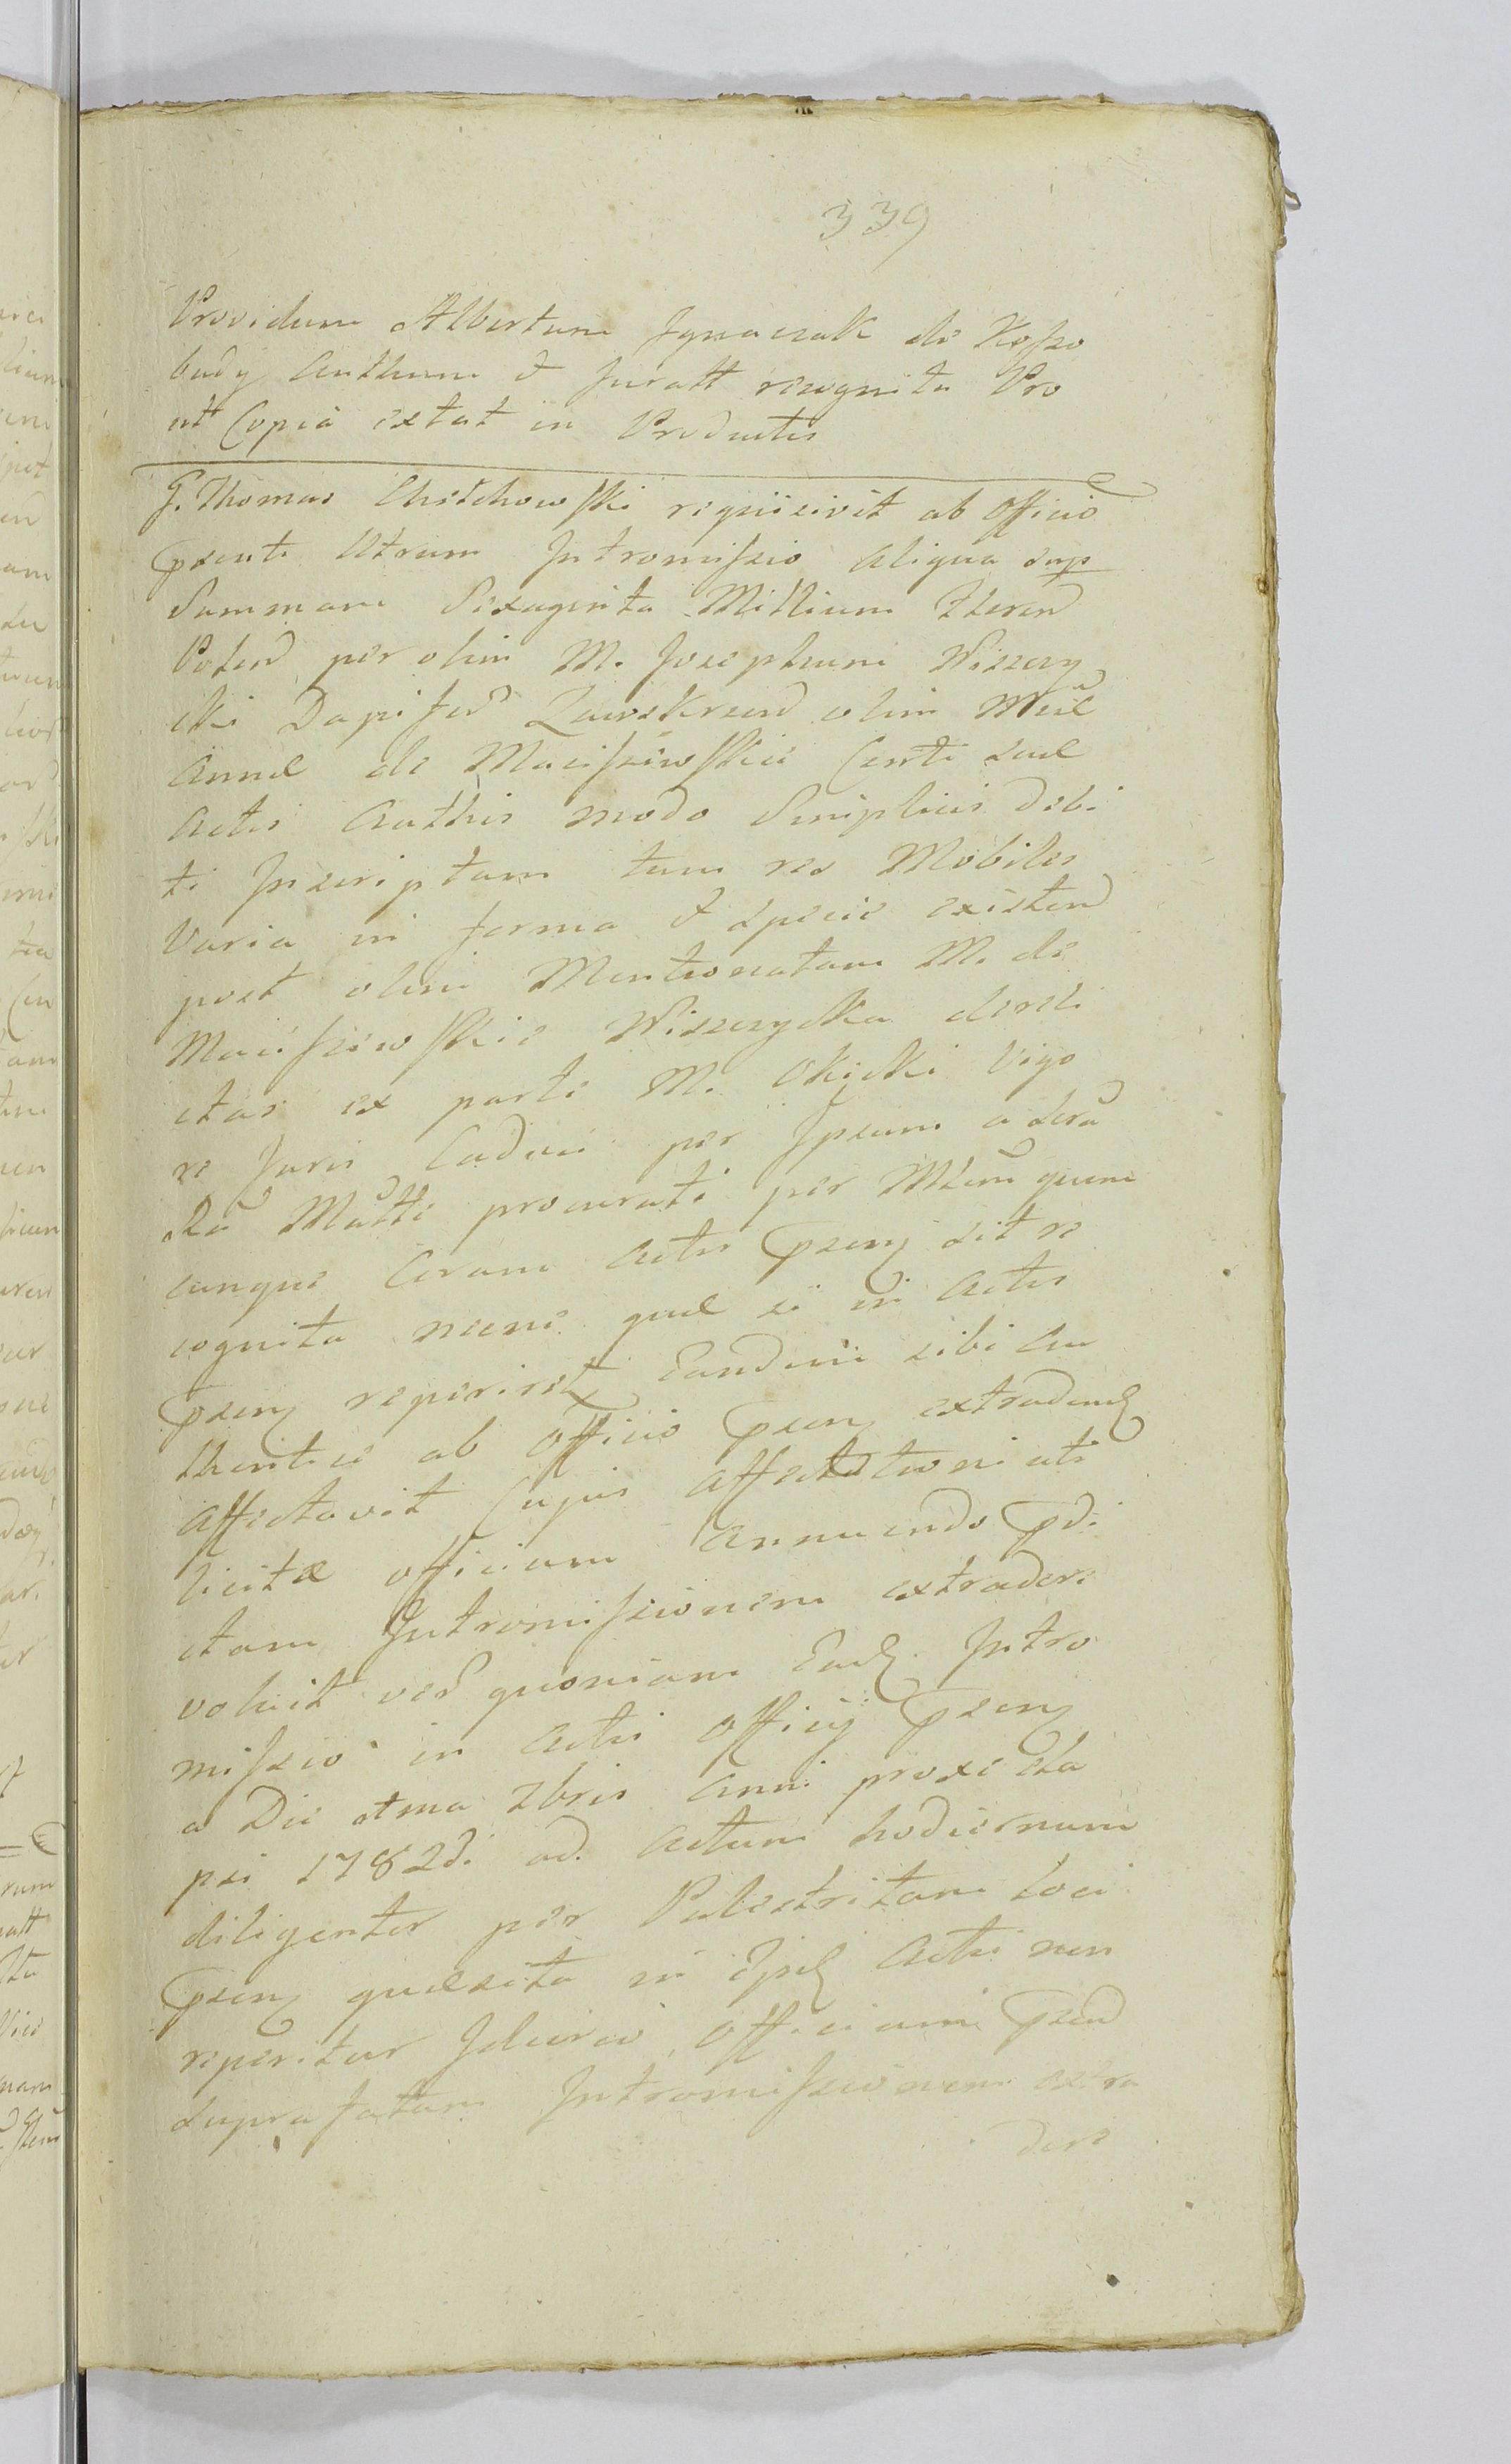 339
Providum Albertum Ignaczak de Koſzo
budy Authum & Juratt recognita Pro
ut Copia extat in Productis
G. Thomas Chełchowſki requisivit ab Officio
pſenti Utrum Intromiſsio aliqua sup
Summam Sexaginta Millium Fleren
Polon per olim M. Josephum Wiszczy
cki Dapifer Zawskrzen olim
Annæ de Macieſzewſkie Conti suæ
Actis Authis modo Simplicis debi
ti Inscriptam tum res Mobiles
Varia in forma & specie existen
post olim Mentionatam M. de
Macieſzewſkie Wiszczycka dereli
ctas ex parte M. Okęcki Vigo
re Juris Caduci per Ipsum a Sera
Ra Mātte procurati per Mlem quem
cunque Coram Actis pſen sit re
cognita necne quæ si in Actis
pſen reperiret Eandem sibi Au
thentice ab Officio pſen extraden
affectavit Cujus affectationi uti
licitæ officium Annuendo pdi
ctam Intromiſsionem extradere
voluit ver quoniam Ead Intro
miſsio in Actis Officij pſen
a Die 1ma Xbris Anni proxe Ela
psi 1782di ad Actum hodiernum
diligenter per Palestritam Loci
pſen quæsita in Ipis Actis non
reperitur Idcirco Officium pſen
suprafatam Intromiſsionem extra
dere